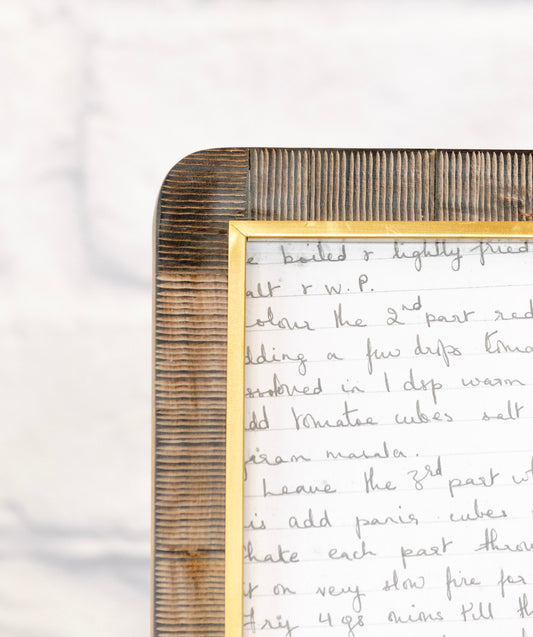 e boiled & lightly fried
alt & W.P.
olour the 2nd part red
dding a few drps toma
ssolved in 1 dsp warm
dd tomatoe cubes salt
giram masala.
Leave the 3rd part wh
is add panir cubes
hake each part throu
it on very slow fire for
Fry 4 gs onions till th